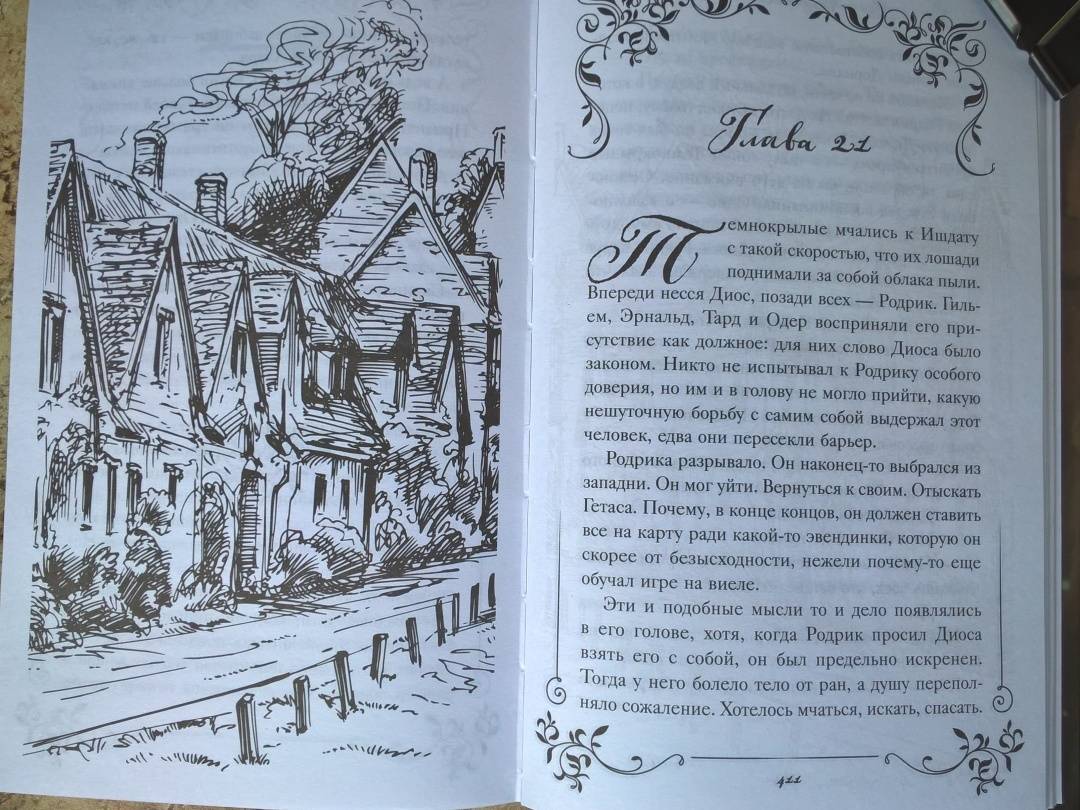 Глава 21
Темнокрылые мчались к Ишдату
с такой скоростью, что их лошади
поднимали за собой облака пыли.
Впереди несся Диос, позади всех — Родрик. Гиль-
ем, Эрнальд, Тард и Одер восприняли его при-
сутствие как должное: для них слово Диоса было
законом. Никто не испытывал к Родрику особого
доверия, но им и в голову не могло прийти, какую
нешуточную борьбу с самим собой выдержал этот
человек, едва они пересекли барьер.
Родрика разрывало. Он наконец-то выбрался из
западни. Он мог уйти. Вернуться к своим. Отыскать
Гетаса. Почему, в конце концов, он должен ставить
все на карту ради какой-то эвендинки, которую он
скорее от безысходности, нежели почему-то еще
обучал игре на виеле.
Эти и подобные мысли то и дело появлялись
в его голове, хотя, когда Родрик просил Диоса
взять его с собой, он был предельно искренен.
Тогда у него болело тело от ран, а душу перепол-
няло сожаление. Хотелось мчаться, искать, спасать.
411